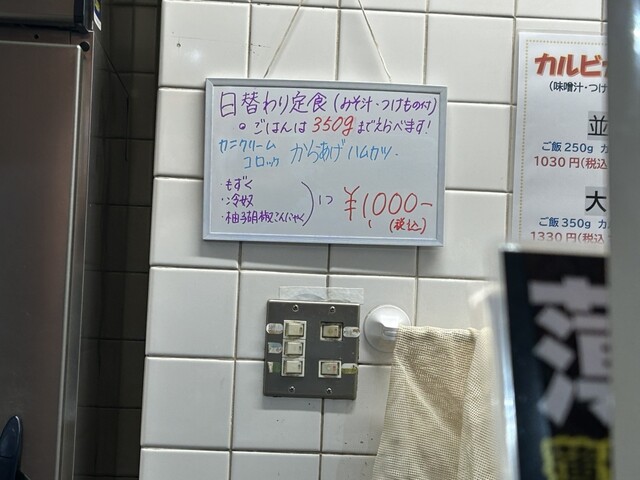 日替わり定食(みそ汁・つけもの付)
ごはんは350gまでえらべます!
カニクリーム
コロッケ からあげ ハムカツ.
・もずく
・冷奴
・柚子胡椒こんにゃく
) 1つ
¥1000-
(税込)
カルビ
(味噌汁・つけ
並
ご飯 250g カ
1030円(税込
大
ご飯 350g カ
1330円(税込